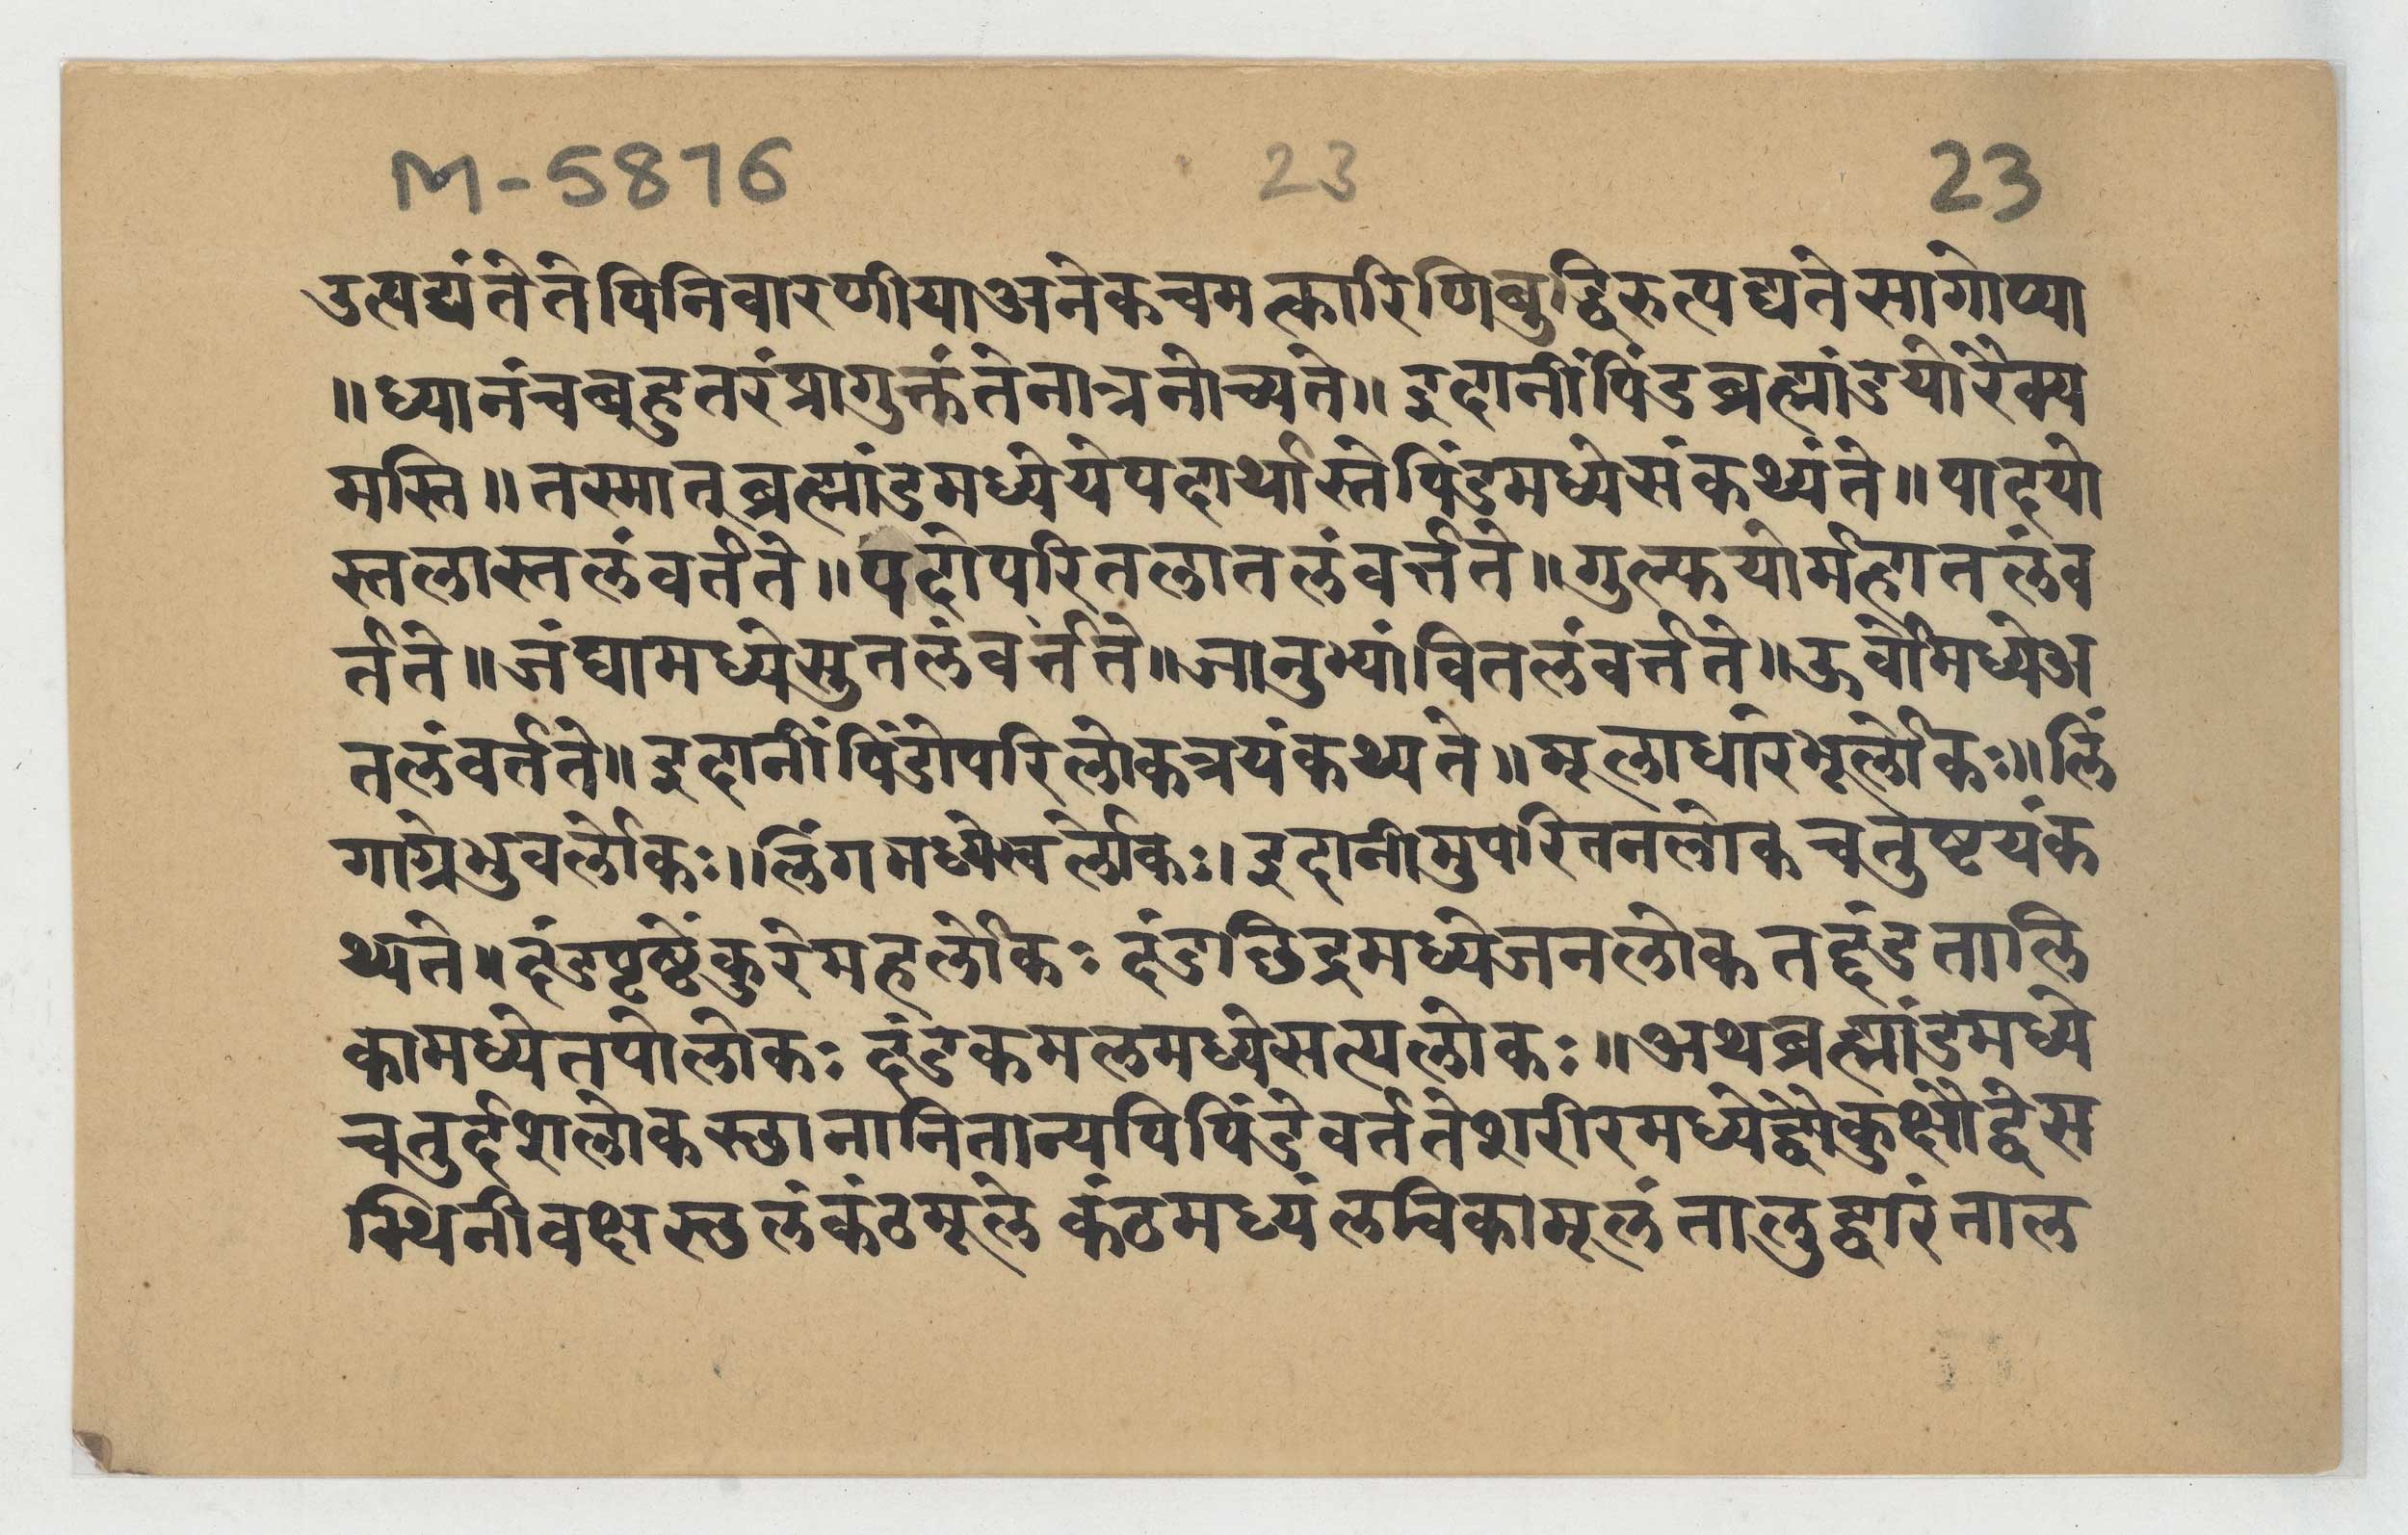 M-5876 23 23
उत्पद्यंतेतेपिनिवारणीयाअनेकचमत्कारिणिबुद्धिरुत्पद्यतेसागोप्या
॥ध्यानंचबहुतरंप्रागुक्तंतेनात्रनोच्यते॥इदानींपिंडब्रह्मांडयोरैक्य
मस्ति॥तस्मात्ब्रह्मांडमध्येयेपदार्थास्तेपिंडमध्येसंकथ्यंते॥पादयो
स्तलास्तलंवर्तते॥पदोपरितलातलंवर्त्तते॥गुल्फयोर्महातलंव
र्तते॥जंघामध्येसुतलंवर्त्तते॥जानुभ्यांवितलंवर्त्तते॥ऊर्वोमध्येअ
तलंवर्तते॥इदानींपिंडोपरिलोकत्रयंकथ्यते॥मूलाधारेभूर्लोकः॥लिं
गाग्रेभुवर्लोकः॥लिंगमध्येस्वर्लोकः।इदानीमुपरितनलोकचतुष्टयंक
थ्यते॥दंडपृष्टेंकुरेमहर्लोकः दंडाछिद्रमध्येजनलोक तद्दंडनालि
कामध्येतपोलोकः दंडकमलमध्येसत्यलोकः॥अथब्रह्मांडमध्ये
चतुर्दशलोकस्छानानितान्यपिपिंडेवर्ततेशरीरमध्येद्वौकुक्षौद्वेस
स्थिनीवक्षस्छलंकंठमूले कंठमध्यंलविकामूलंतालुद्वारंताल